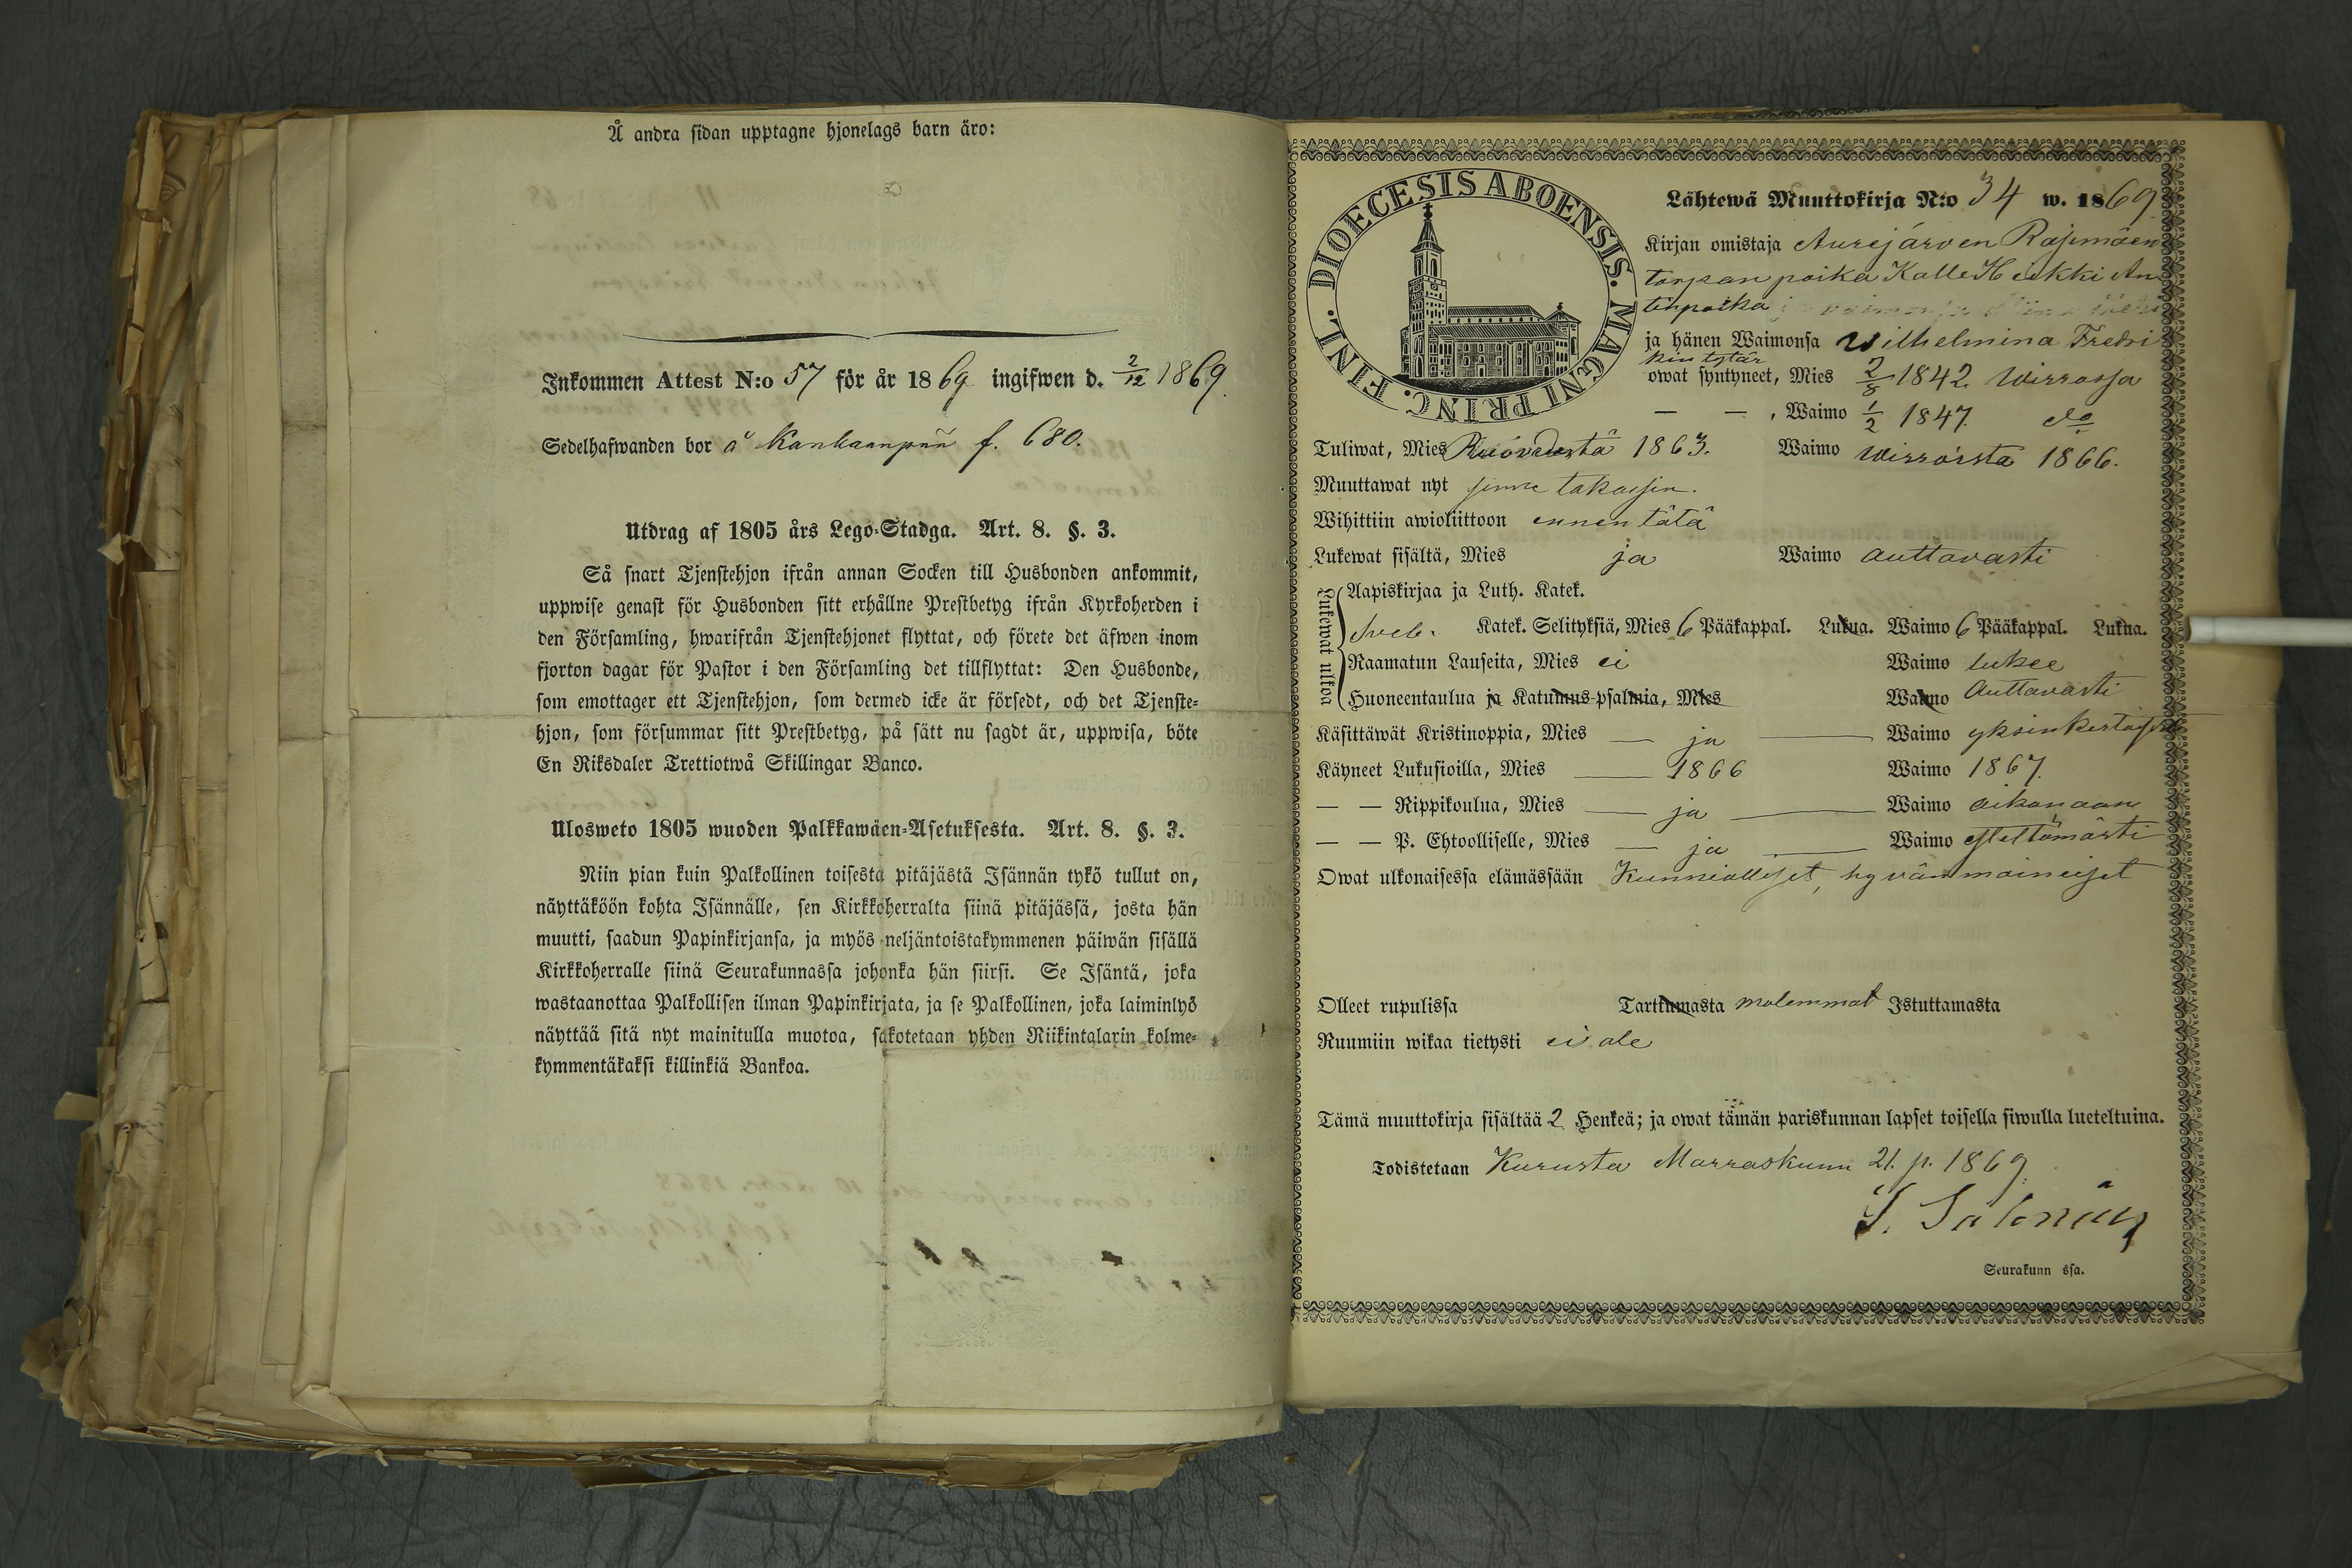 Å andra sidan upptagne hjonelags barn äro:
Inkommen Attest N:o 57 för år 1869 ingifwen d. 2/12 1869.
Sedelhafwanden bor å Kankaanpää f. 680.
Utdrag af 1805 års Lego-Stadga. Art. 8. §. 3.
Så snart Tjenstehjon ifrån annan Socken till Husbonden ankommit,
uppwise genast för Husbonden sitt erhållne Prestbetyg ifrån Kyrkoherden i
den Församling, hwarifrån Tjenstehjonet flyttat, och förete det äfwen inom
fjorton dagar för Pastor i den Församling det tillflyttat: Den Husbonde,
som emottager ett Tjenstehjon, som dermed icke är försedt, och det Tjenste-
hjon, som försummar sitt Prestbetyg, på sätt nu sagdt är, uppwisa, böte
En Riksdaler Trettiotwå Skillingar Banco.
Ulosweto 1805 wuoden Palkkawäen-Asetuksesta. Art. 8. §. 3.
Niin pian kuin Palkollinen toisesta pitäjästä Isännän tykö tullut on,
näyttäköön kohta Isännälle, sen Kirkkoherralta siinä pitäjässä, josta hän
muutti, saadun Papinkirjansa, ja myös neljäntoistakymmenen päiwän sisällä
Kirkkoherralle siinä Seurakunnassa johonka hän siirsi. Se Isäntä, joka
wastaanottaa Palkollisen ilman Papinkirjata, ja se Palkollinen, joka laiminlyö
näyttää sitä nyt mainitulla muotoa, sakotetaan yhden Riikintalarin kolme-
kymmentäkaksi killinkiä Bankoa.
DIOECESIS ABOENSIS. MAGNI PRINC. FINL.
Lähtewä Muuttokirja N:o 34 w. 1869
Kirjan omistaja Aurejärven Rajamäen
torpan poika Kalle Heikki An
tinpoika
ja hänen Waimonsa Wilhelmina Fredri
kin tytär
owat syntyneet, Mies 2/8 1842. Wirrossa
— — , Waimo 1/2 1847. do
Tuliwat, Mies Ruovedestä 1863. Waimo Wirroista 1866.
Muuttawat nyt sinne takasin.
Wihittiin awioliittoon ennen tätä
Lukewat sisältä, Mies ja Waimo auttavasti
Lukewat ulkoa
Aapiskirjaa ja Luth. Katek.
Sveb. Katek. Selityksiä, Mies 6 Pääkappal. Lukua. Waimo 6 Pääkappal. Lukua.
Raamatun Lauseita, Mies ei Waimo lukee
Huoneentaulua ja Katumus-psalmia, Mies Waimo Auttavasti
Käsittäwät Kristinoppia, Mies — ja — Waimo
Käyneet Lukusioilla, Mies — 1866 Waimo 1867.
— — Rippikoulua, Mies — ja — Waimo aikanaan
— — P. Ehtoolliselle, Mies — ja — Waimo estettömästi
Owat ulkonaisessa elämässään Kunnialliset, hyvänmaineiset
Olleet rupulissa Tarttumasta molemmat Istuttamasta
Ruumiin wikaa tietysti ei ole
Tämä muuttokirja sisältää 2 Henkeä; ja owat tämän pariskunnan lapset toisella siwulla lueteltuina.
Todistetaan Kurusta Marraskuun 21. p. 1869.
Seurakunn ssa.